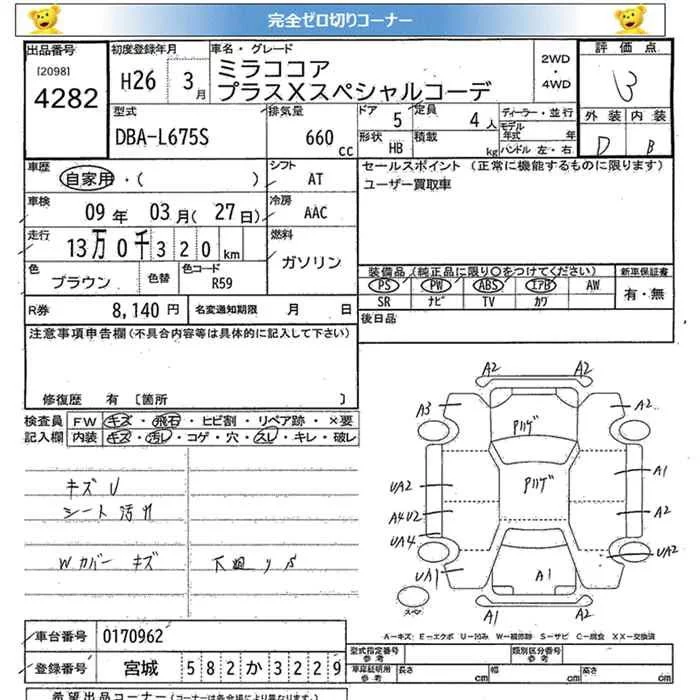 完全ゼロ切りコーナー
出品番号
[2098]
4282
初度登録年月
H26 3月
車名・グレード
ミラココア
プラスXスペシャルコーデ
2WD
・
4WD
評価点
3
外装 内装
D B
型式
DBA-L675S
排気量
660 cc
ドア 5
定員 4人
形状 HB
積載 kg
ディーラー・並行
モデル年式 年
ハンドル 左・右
車歴
自家用・( )
シフト
AT
車検
09年 03月(27日)
冷房
AAC
走行
13万0千320km
燃料
ガソリン
色
ブラウン
色替
色コード
R59
R券 8,140円
名変通知期限 月 日
セールスポイント (正常に機能するものに限ります)
ユーザー買取車
装備品(純正品に限り○をつけてください)
新車保証書
PS PW ABS エアB AW
SR ナビ TV カワ
有・無
後日品
注意事項申告欄(不具合内容等は具体的に記入して下さい)
修復歴 有 [箇所 ]
検査員記入欄
FW キズ・飛石・ヒビ割・リペア跡・×要
内装 キズ・汚レ・コゲ・穴・スレ・キレ・破レ
キズU
シート汚れ
Wカバー キズ
下廻りS
A2 A2
A3 A2
Pハゲ
Pハゲ
A1
UA2
A4U2 A2
UA4 UA2
UA1 A1
スペア
A1 A2
A-キズ E-エクボ U-凹み W-補修跡 S-サビ C-腐食 XX-交換済
車台番号 0170962
登録番号 宮城 582か3229
型式指定番号 参考
類別区分番号 参考
車庫証明用 参考
長さ cm 幅 cm 高さ cm
希望出品コーナー(コーナーは各会場により異なります)